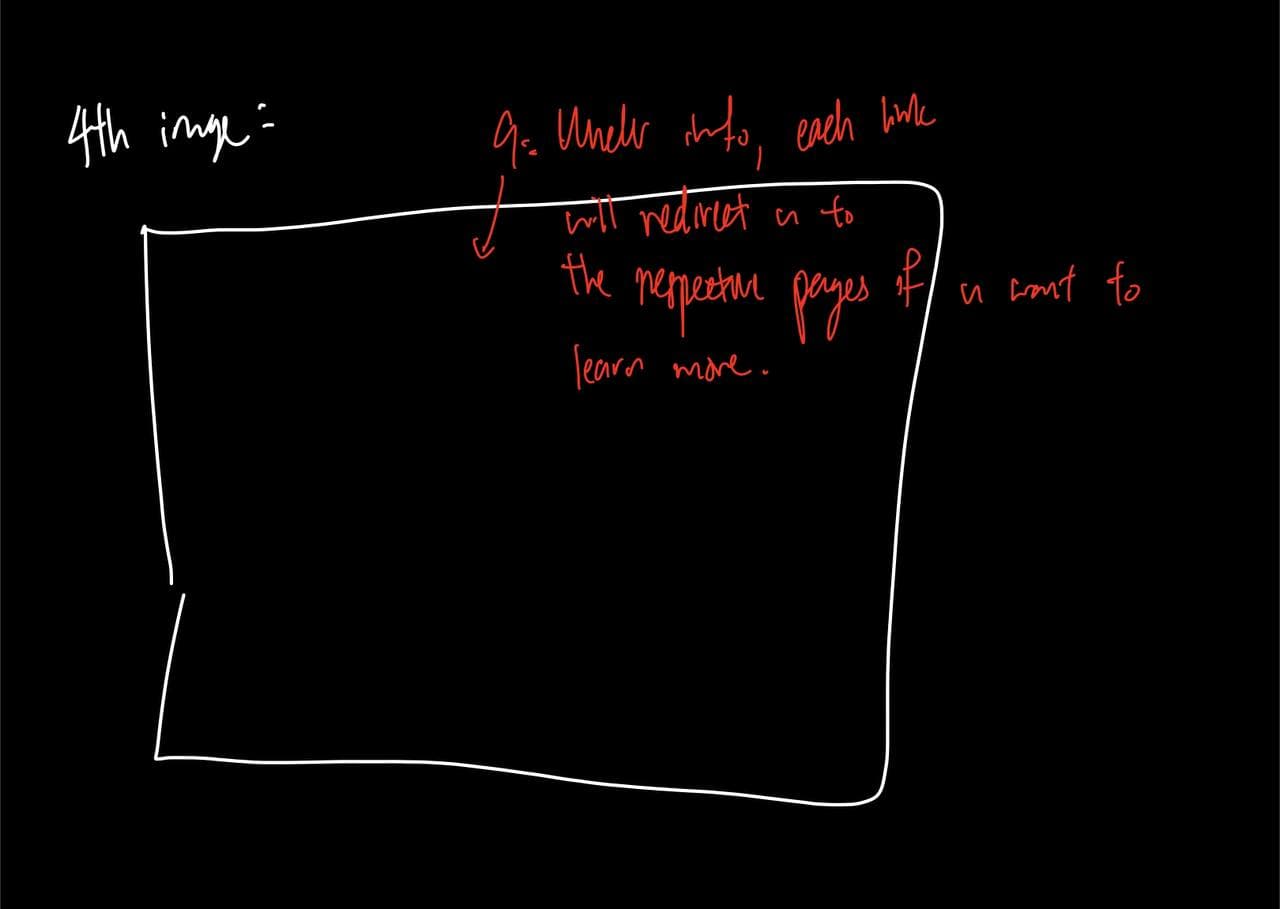 4th image:
9: Under info, each link
will redirect u to
the respective pages if u want to
learn more.